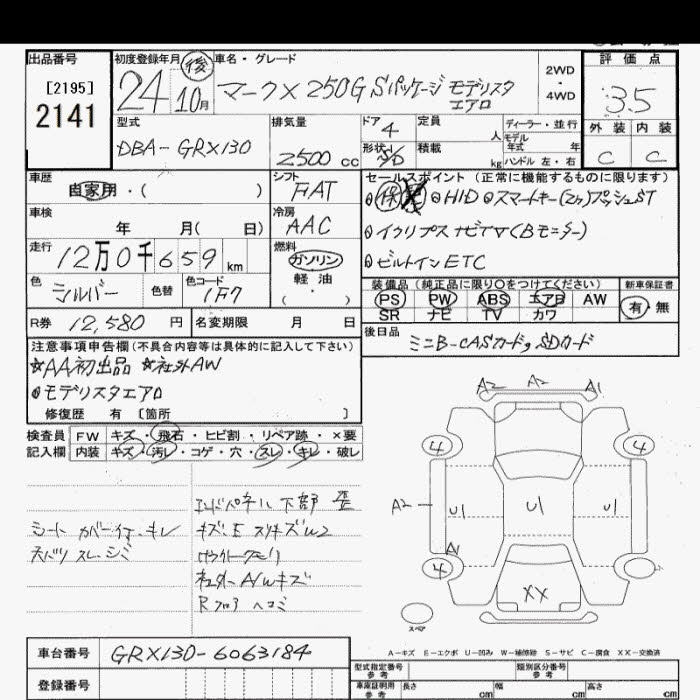 出品番号
[2195]
2141
初度登録年月 後
24 10月
車名・グレード
マークX 250G Sパッケージ モデリスタ
エアロ
2WD
・
4WD
評価点
3.5
外装 内装
C C
型式
DBA-GRX130
排気量
2500 cc
ドア 4
形状
定員 人
積載 kg
ディーラー・並行
モデル年式 年
ハンドル 左・右
車歴
自家用・( )
シフト
FAT
車検
年 月( 日)
冷房
AAC
走行
12万0千659km
燃料
ガソリン
軽油
・
( )
色
シルバー
色替
色コード
1F7
R券 12,580 円
名変期限 月 日
セールスポイント(正常に機能するものに限ります)
保 HID スマートキー(2ヶ)プッシュST
イクリプスナビTV(Bモニター)
ビルトインETC
装備品(純正品に限り○をつけてください)
PS PW ABS エアB AW
SR ナビ TV カワ
新車保証書
有・無
後日品
ミニB-CASカード,SDカード
注意事項申告欄(不具合内容等は具体的に記入して下さい)
☆AA初出品 ☆社外AW
モデリスタエアロ
修復歴 有 [箇所 ]
検査員
記入欄
FW キズ・飛石・ヒビ割・リペア跡・×要
内装 キズ・汚レ・コゲ・穴・スレ・キレ・破レ
シートカバー付、キレ
天バリ スレ、シミ
エンドパネル 下部 歪
キズ、E スリキズW2
社外AWキズ
Rフロア ヘコミ
A2 A2 A1
4 4
A2 U1 U1 U1
A1
4
XX
スペア
A-キズ E-エクボ U-凹み W-補修跡 S-サビ C-腐食 XX-交換済
車台番号
GRX130-6063184
登録番号
型式指定番号
参考
類別区分番号
参考
車庫証明用
参考
長さ cm 幅 cm 高さ cm